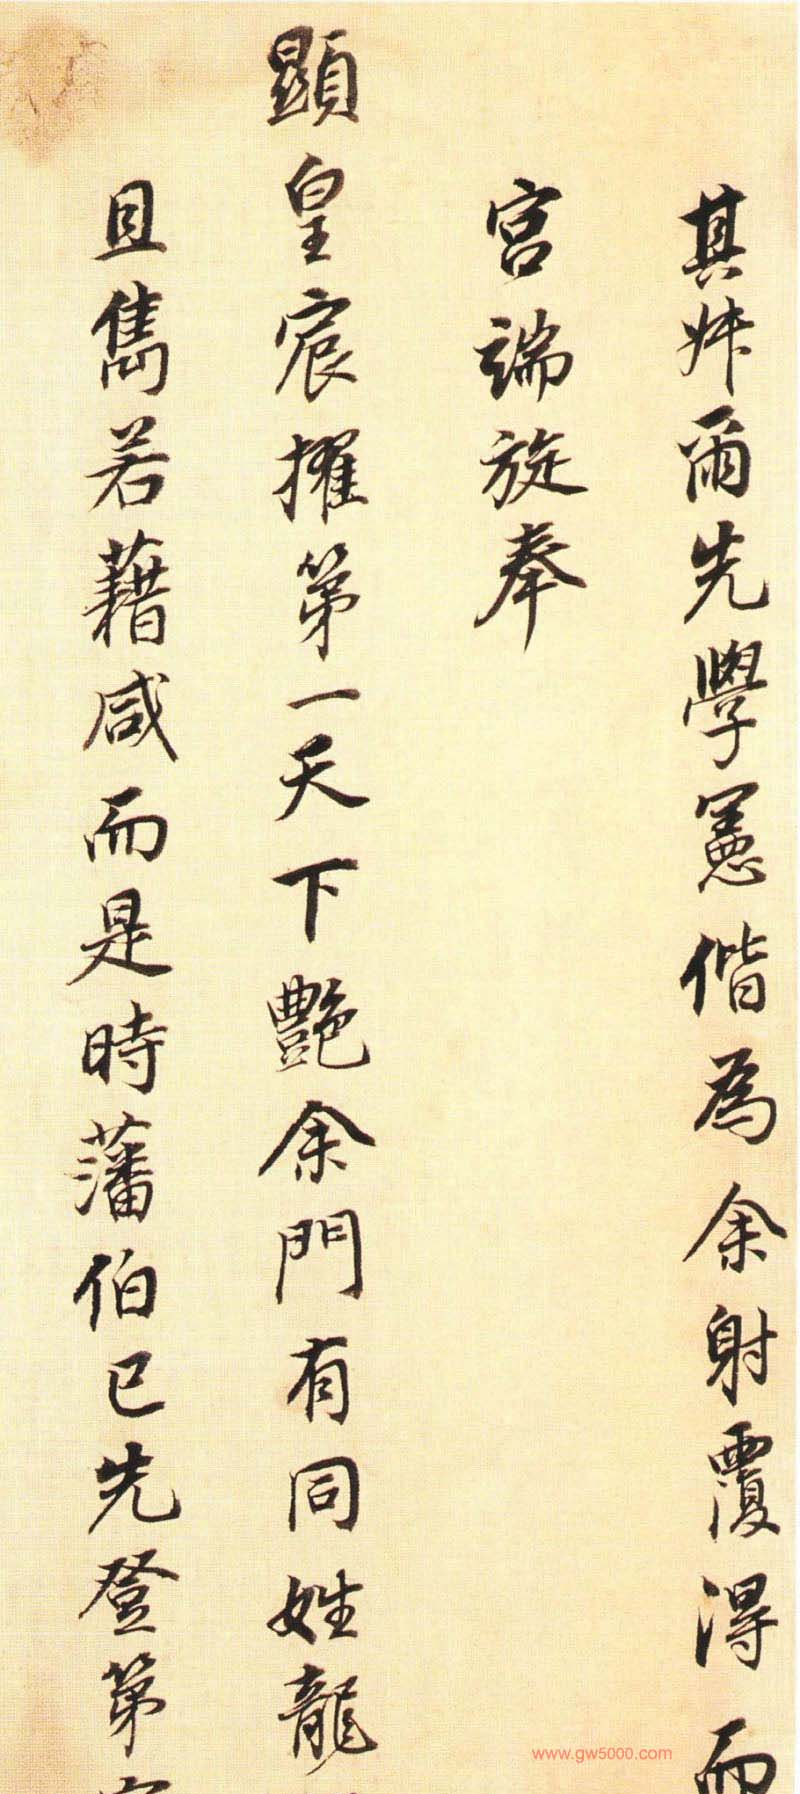 其叔爾先學憲偕為余射覆得而
宮端旋奉
顯皇宸擢第一天下艷余門有同姓龍
且雋若藉咸而是時藩伯已先登第
www.gw5000.com